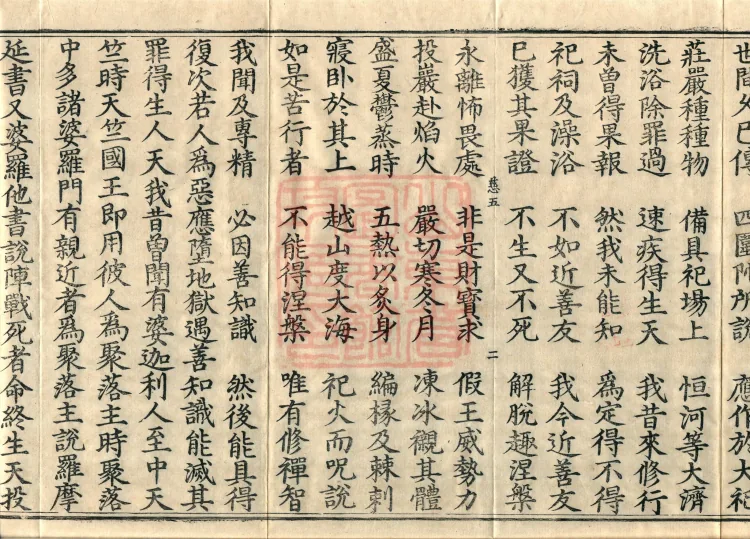 世間久已傳 四圍陀所說 應作於大祀
莊嚴種種物 備具祀場上 恒河等大濟
洗浴除罪過 速疾得生天 我昔來修行
未曾得果報 然我未能知 爲定得不得
祀祠及澡浴 不如近善友 我今近善友
已獲其果證 不生又不死 解脫趣涅槃
慈五 二
永離怖畏處 非是財寶求 假王威勢力
投巖赴焰火 嚴切寒冬月 凍冰觀其體
盛夏鬱蒸時 五熱以炙身 編椽及棘刺
寢臥於其上 越山度大海 祀火而呪說
如是苦行者 不能得涅槃 唯有修禪智
我聞及專精 必因善知識 然後能具得
復次若人爲惡應墮地獄遇善知識能滅其
罪得生人天我昔曾聞有婆迦利人至中天
竺時天竺國王即用彼人爲聚落主時聚落
中多諸婆羅門有親近者爲聚落主說羅摩
延書又婆羅他書說陣戰死者命終生天投